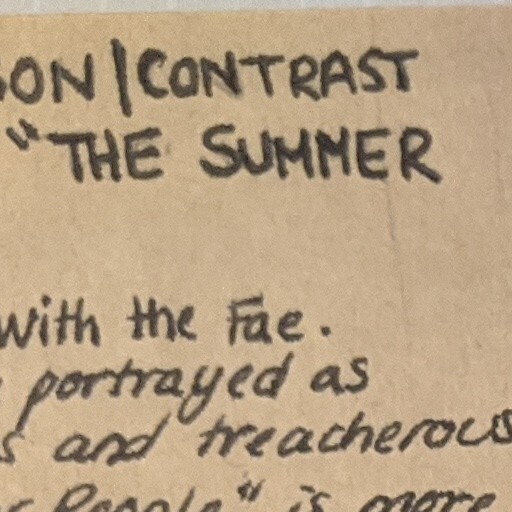 SON|CONTRAST
"THE SUMMER
with the Fae.
portrayed as
s and treacherous
People" is more